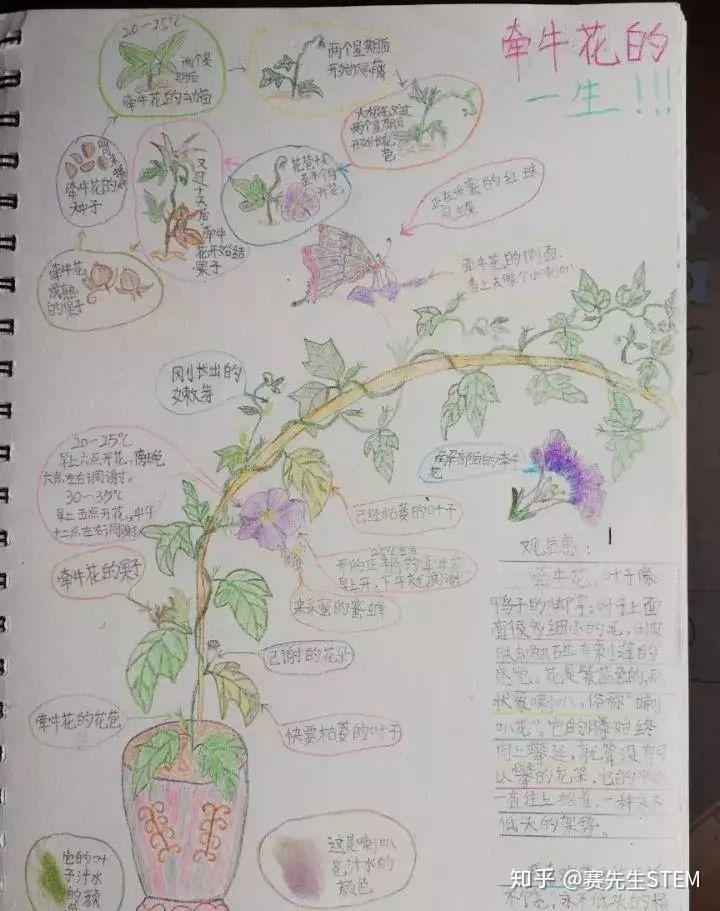 牵牛花的
一生!!!
20-35℃
两个星
期后
牵牛花的幼苗
两个星期后
开始爬藤
两个星期后
包
花苞
开花
一
又
过
十
天
后,牵牛
花开始结
果子
牵牛花的
种子
牵牛花
成熟
的果子
正在采蜜的红珠
凤蝶
牵牛花的侧面,
看上去像个小喇叭
刚长出的
嫩芽
20-25℃
早上六点开花,傍晚
六点左右凋谢。
30-35℃
早上五点开花,中午
十二点左右凋谢
解剖后的牵牛
花
已经枯萎的叶子
25℃左右
开的正艳的牵牛花
早上开,下午就凋谢
牵牛花的果子
来采蜜的蜜蜂
已谢的花朵
牵牛花的花苞
快要枯萎的叶子
观后感:
牵牛花,叶子像
鸭子的脚掌,叶子上面
有很多细小的毛,
花是紫蓝色的,形
状像喇叭,俗称“喇
叭花”。它的藤始终
向上攀延,就算没有可
以攀的花架,它的
一直往上抬着,一种永不
低头的架势。
它的叶
子汁水
的颜
色
这是喇叭
花汁水的
颜色
知乎 @赛先生STEM